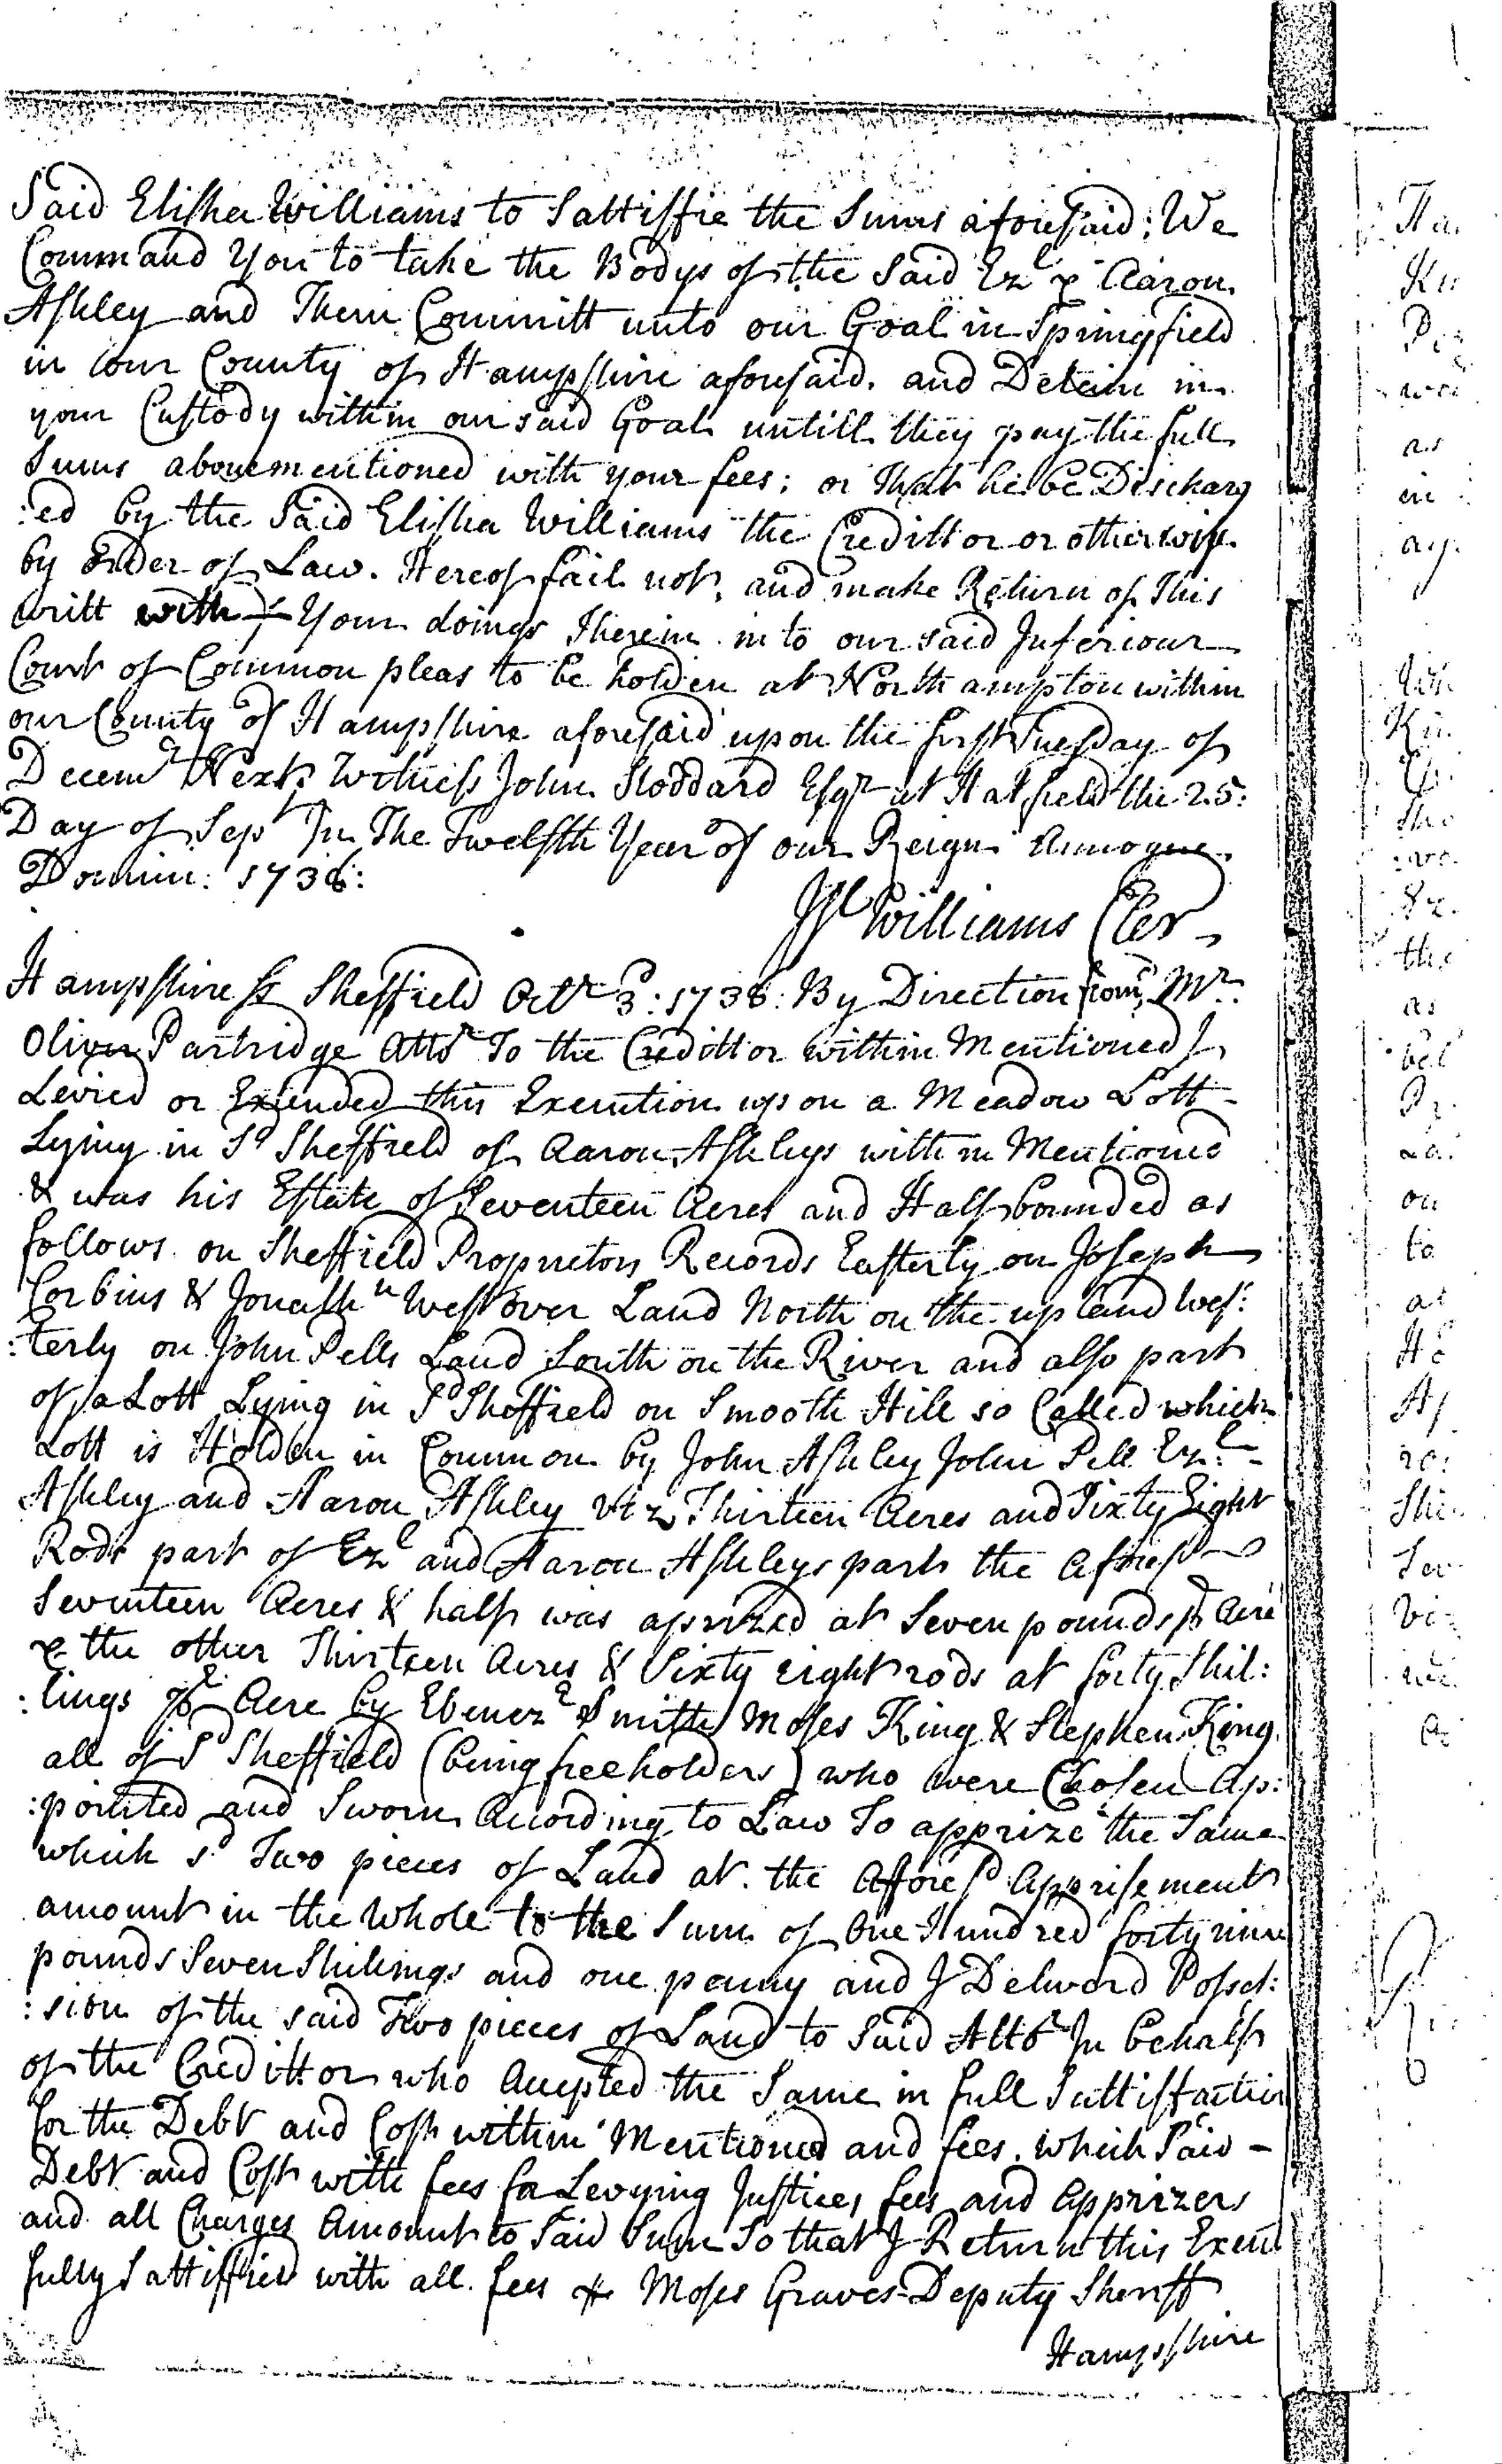 Said Elisha Williams to Sattisfie the Sums aforesaid; We
Command You to take the Bodys of the Said Ezl & Aaron
Ashley and Them Committ unto our Goal in Springfield
in our County of Hampshire aforesaid. and Detein in
your Custody within our said Goal untill they pay the full
Sums abovementioned with your fees; or That he be Discharg
:ed by the Said Elisha Williams the Credittor or otherwise
by order of Law. Hereof fail not, and make Return of This
writt with Your doings Therein into our said Inferiour
Court of Common pleas to be holden at Northampton within
our County of Hampshire aforesaid upon the first Tuesday of
Decemr Next. Witness John Stoddard Esqr at Hatfield the 25:
Day of Sept In The Twelfth Year of our Reign Annoque
Domini: 1738:
Wl Williams Cler
Hampshire ss Sheffield Octr 3: 1738: By Direction from Mr
Oliver Partridge Attor To the Credittor within Mentioned I
Levied or Extended this Execution upon a Meadow Lott
Lying in Sd Sheffield of Aaron Ashleys within Mentioned
& was his Estate of Seventeen Acres and Half bounded as
follows on Sheffield Proprietors Records Easterly on Joseph
Corbins & Jonathn Westover Land North on the upland Wes:
:terly on John Pells Land South on the River and also part
of a Lott Lying in Sd Sheffield on Smooth Hill so Called which
Lott is Holden in Common by John Ashley John Pell Ezl
Ashley and Aaron Ashley viz Thirteen Acres and Sixty Eight
Rods part of Ezl and Aaron Ashleys part the Aforesd
Seventeen Acres & half was aprized at Seven pounds pr Acre
& the other Thirteen Acres & Sixty eight rods at forty Shil:
:lings pr Acre by Ebenezr Smith Moses King & Stephen King
all of Sd Sheffield (being freeholders) who were Chosen Ap:
:pointed and Sworn According to Law To apprize the Same
which sd Two pieces of Land at the Afforesd Apprisement
amount in the Whole to the Sum of One Hundred forty nine
pounds Seven Shillings and one penny and I Deliverd Posses:
:sion of the said Two pieces of Land to Said Attor In behalf
of the Credittor who Accepted the Same in full Sattisfaction
for the Debt and Cost within Mentioned and fees. which Said
Debt and Cost with fees for Levying Justices fees and Apprizers
and all Charges Amount to Said Sum So that I Return this Execut
fully Sattisfied with all fees Moses Graves Deputy Sheriff
Hampshire